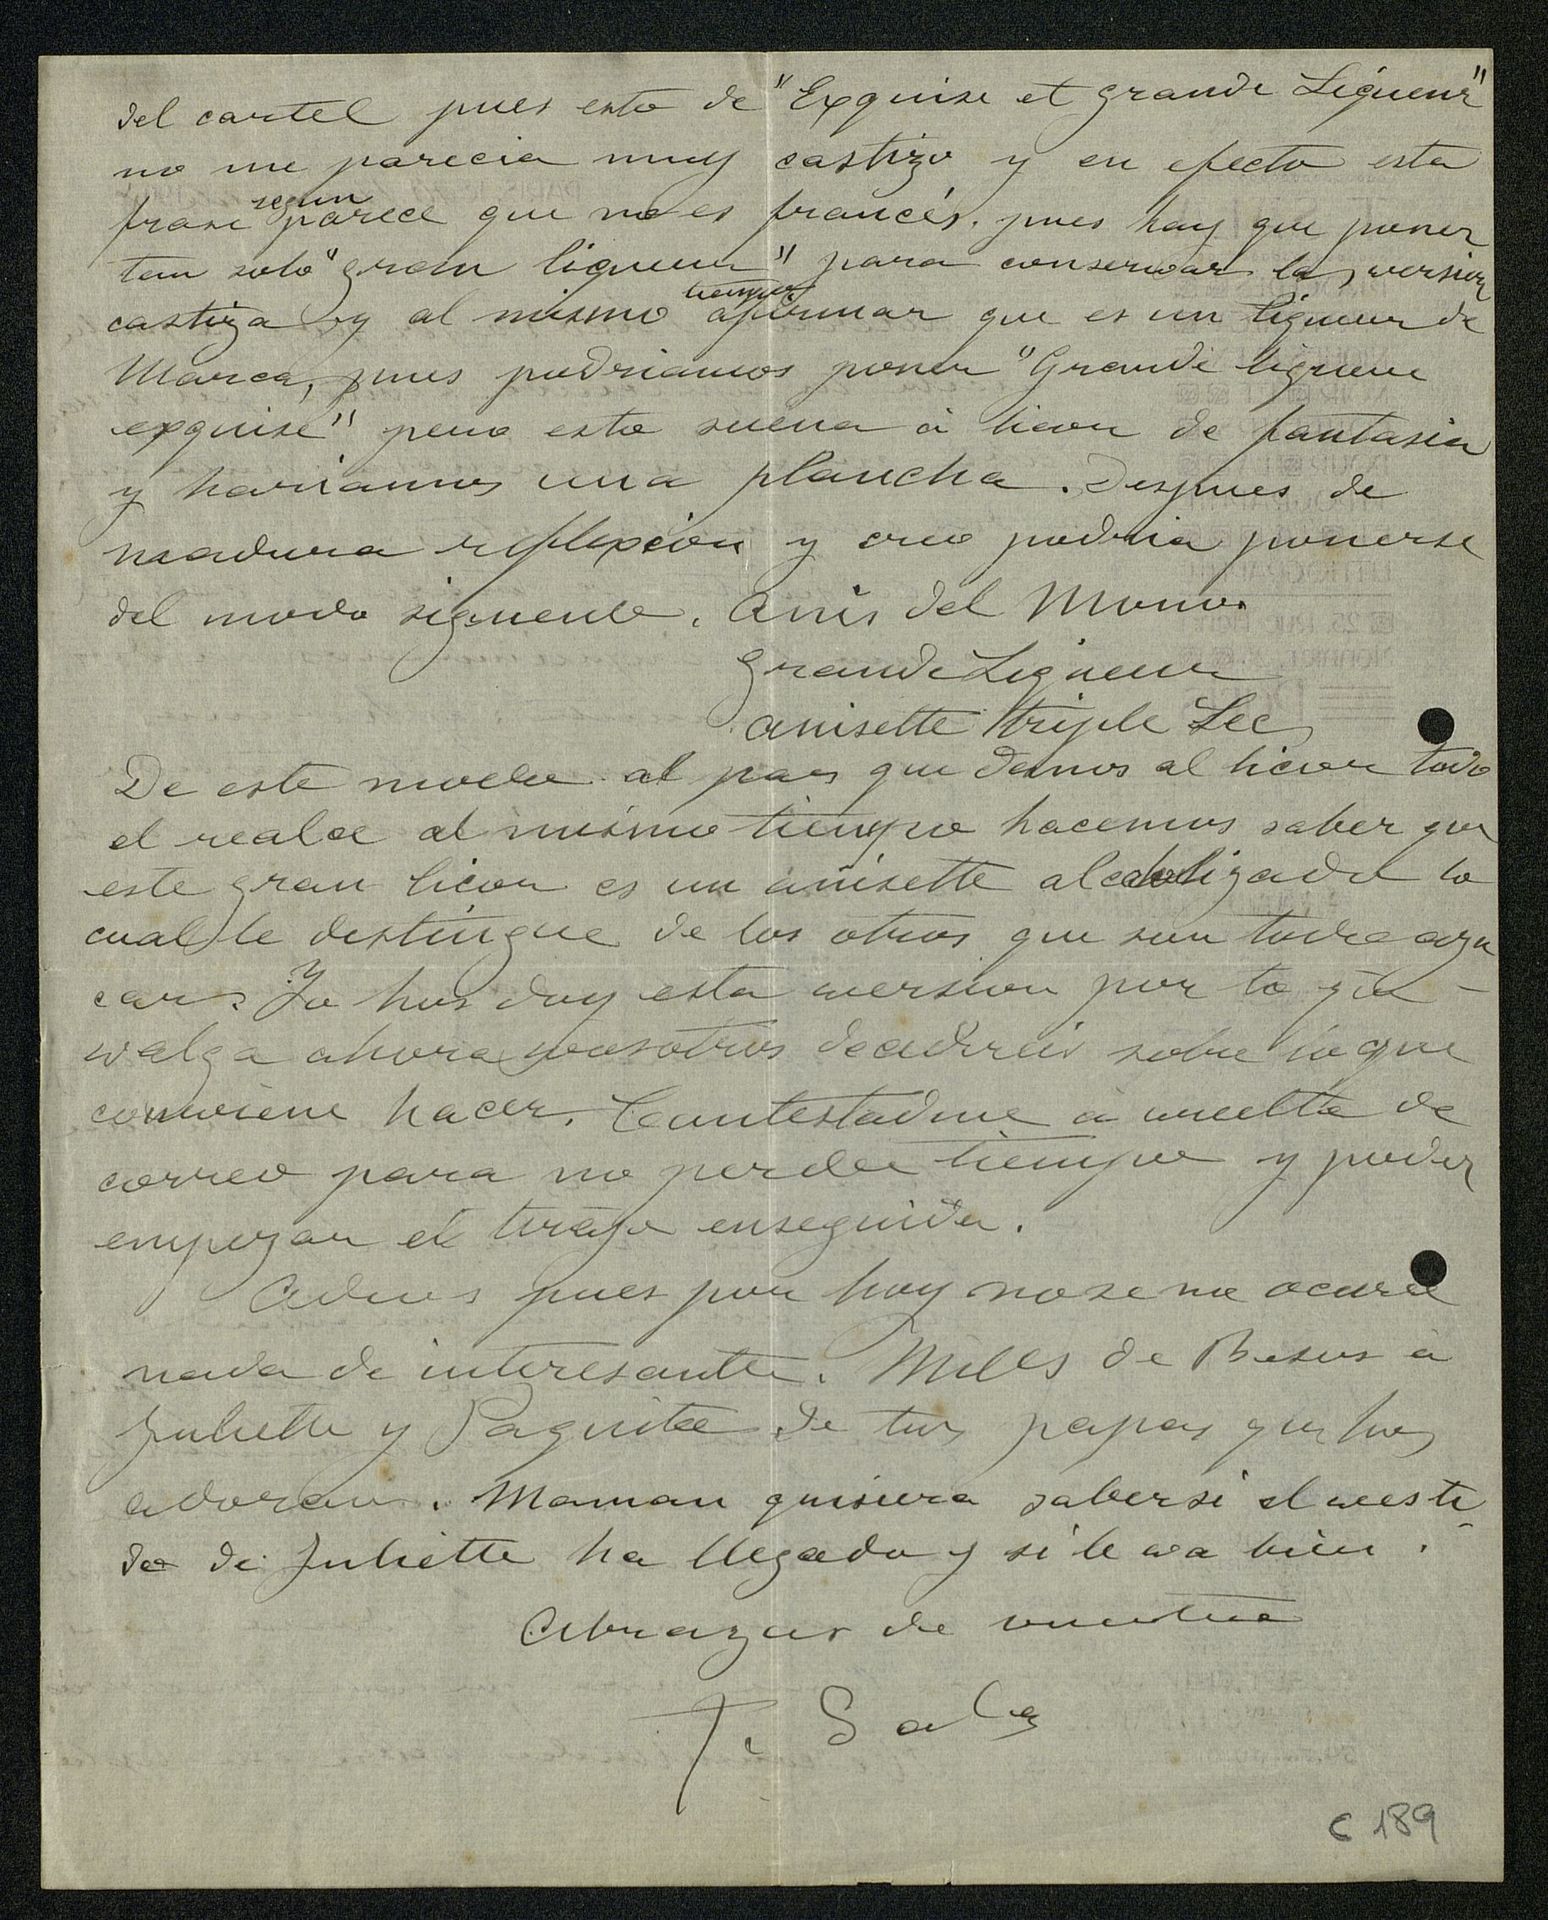 del cartel pues esto de "Exquise et grande Liqueur"
no me parecia muy castizo y en efecto esta
frase segun parece que no es francés. pues hay que poner
tan solo "gran liqueur" para conservar la version
castiza y al mismo tiempo afirmar que es un liqueur de
Marca, pues podriamos poner "Grande liqueur
exquise" pero esto suena á licor de fantasia
y hariamos una plancha. Despues de
madura reflexion y creo podria ponerse
del modo siguente. Anis del Mono.
Grande Liqueur
anisette triple Sec
De este modo al par que damos al licor todo
el realce al mismo tiempo hacemos saber que
este gran licor es un anisette alcoholizado lo
cual le distingue de los otros que son todo azu
car. Yo hos doy esta version por lo que
valga ahora vosotros decidireis sobre lo que
conviene hacer. Contestadme á vuelta de
correo para no perder tiempo y poder
empezar el tirage enseguida.
Adios pues por hoy no se me ocurre
nada de interesante. Miles de Besos á
Juliette y Paquita de tus papas que hos
adoran. Maman quisiera saber si el vesti-
do de Juliette ha llegado y si le va bien.
Abrazos de vuestro
T. Sala
C 189